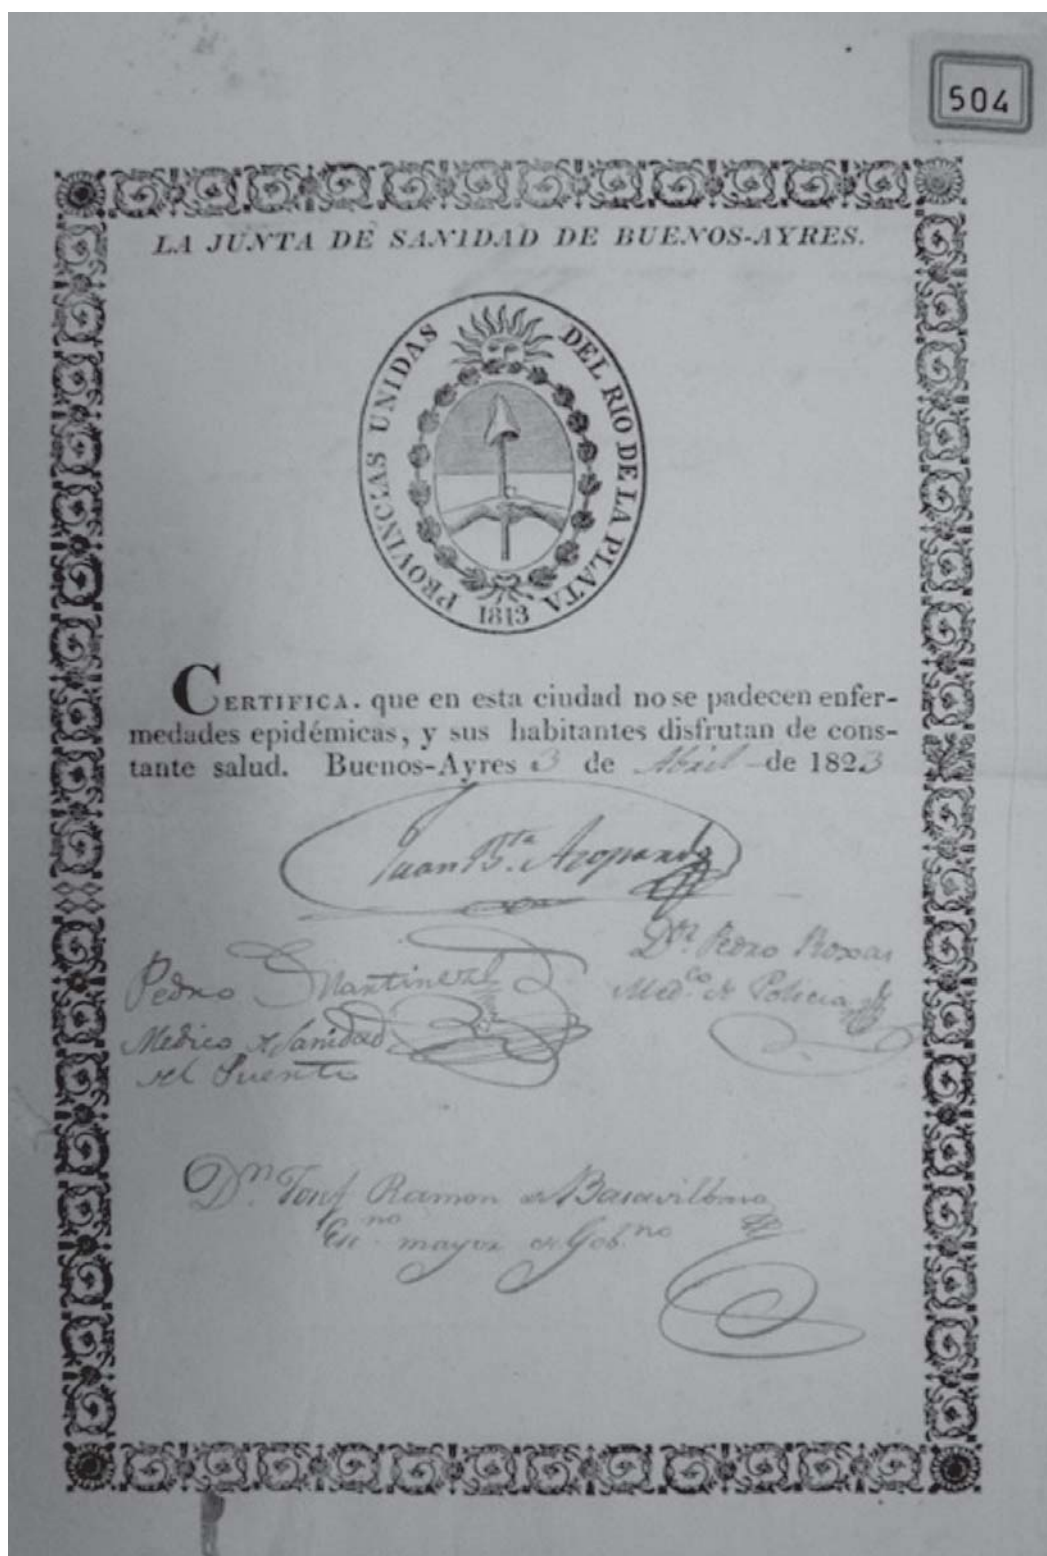 504
LA JUNTA DE SANIDAD DE BUENOS-AYRES.
PROVINCIAS UNIDAS DEL RIO DE LA PLATA
1813
CERTIFICA. que en esta ciudad no se padecen enfer-
medades epidémicas, y sus habitantes disfrutan de cons-
tante salud. Buenos-Ayres 3 de Abril de 1823
Juan B.ta Azopardo
Dor Pedro Roxas
Med.co de Policia
Pedro Martinez
Medico de Sanidad
del Puerto
Dn. Josef Ramon de Basavilbaso
Esno mayor de Gobno